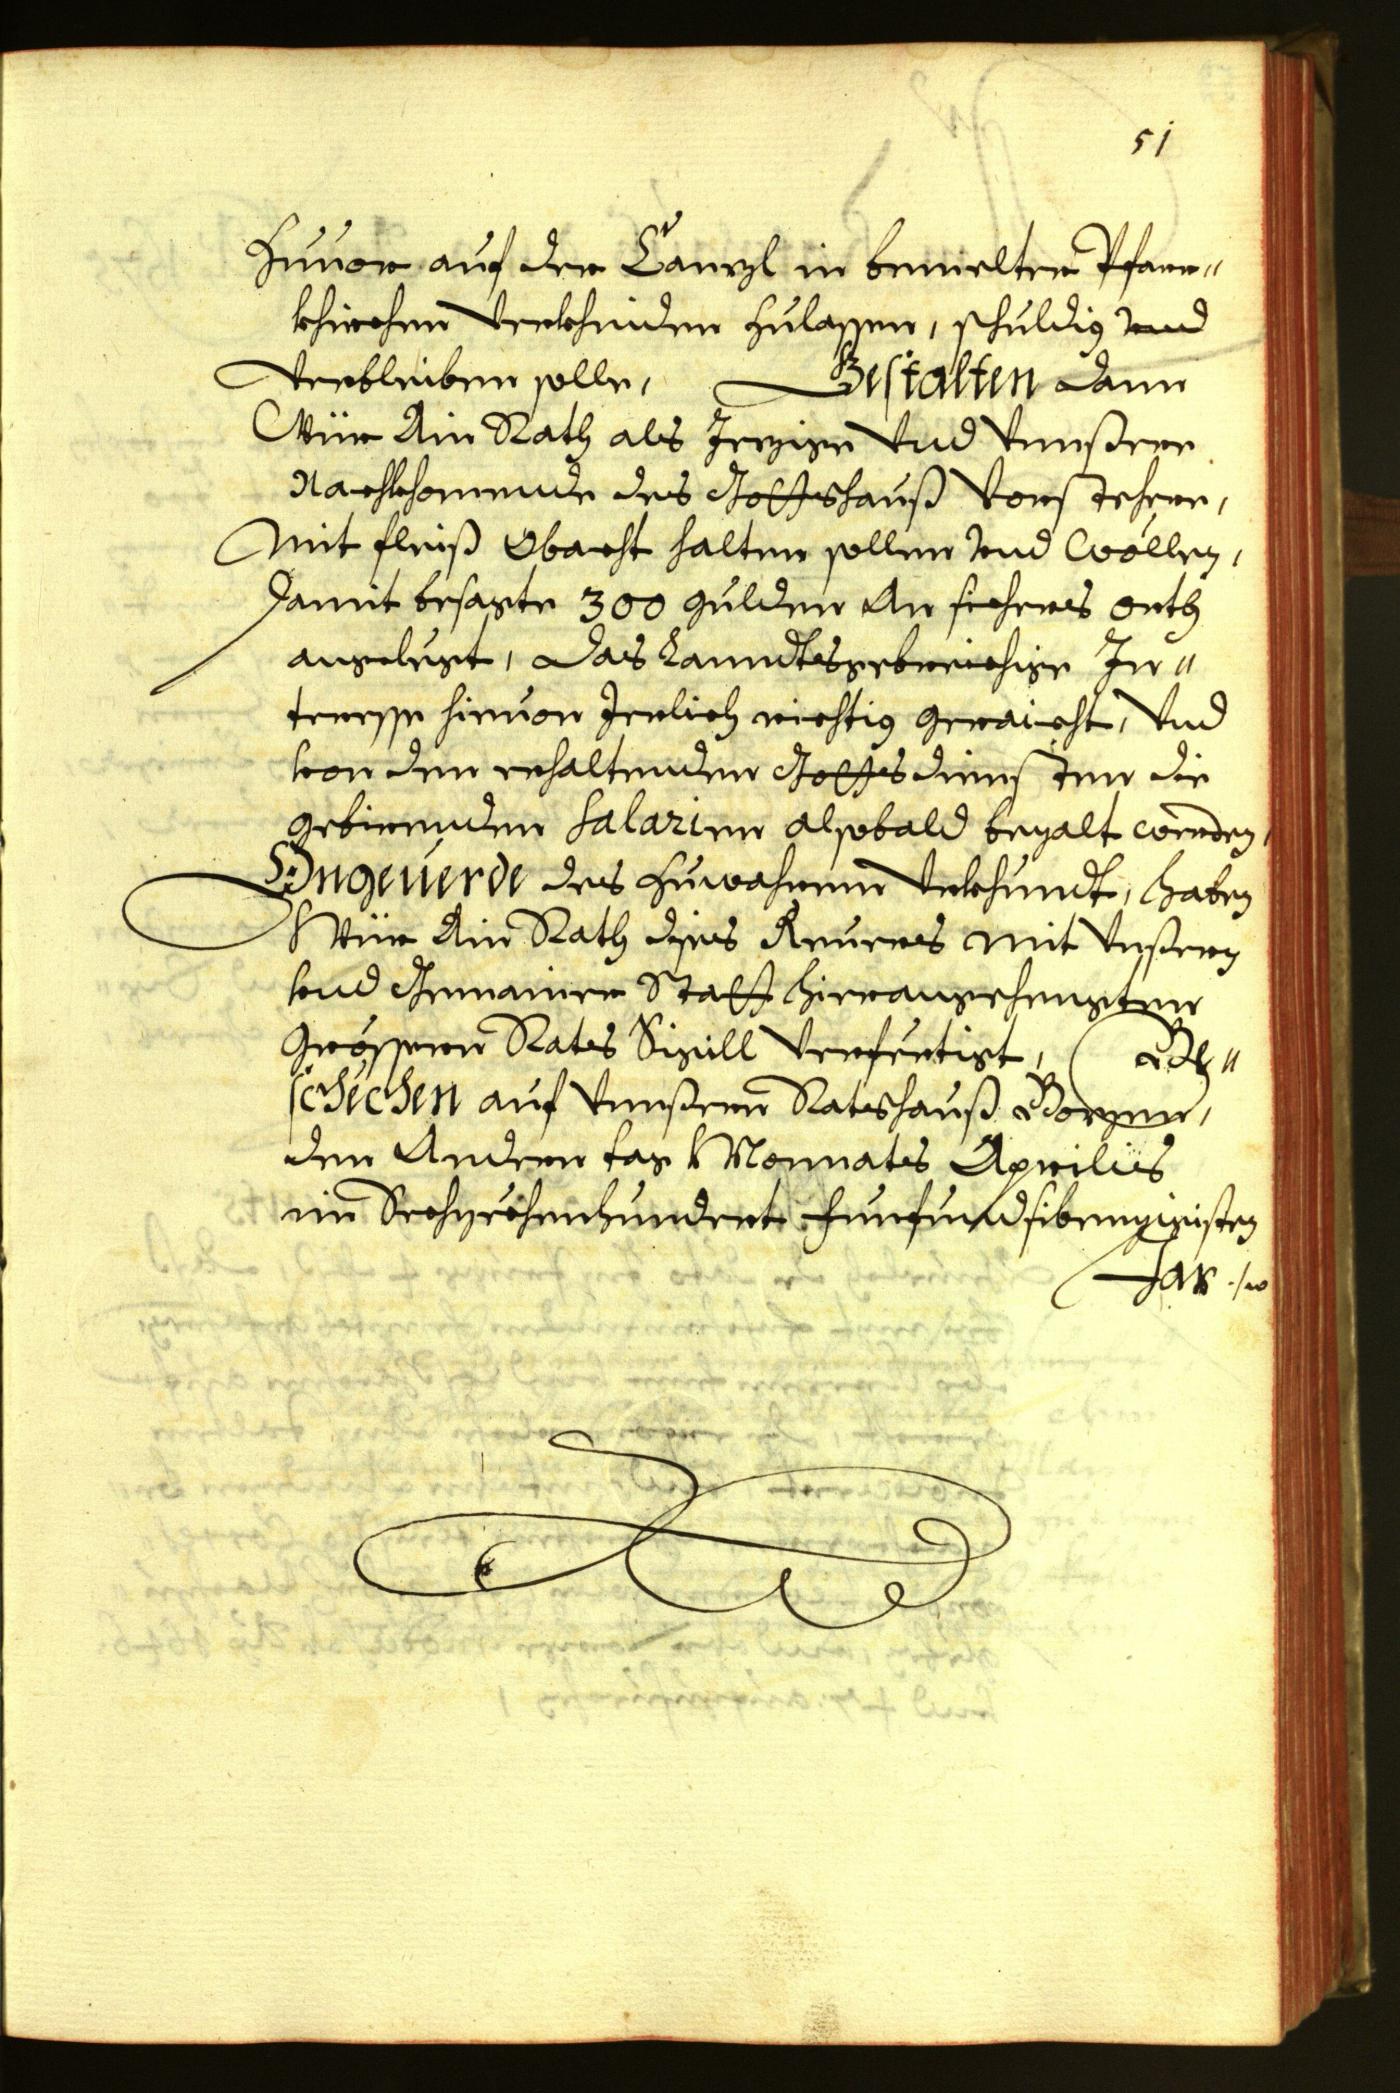 51
Zuuor auf der Canzl in bemelter Pfarr„
khirchen verkhinden zulassen, schuldig vnd
verbleiben solle, Gestalten dann
Wür Ain Rath als Jezige vnd vnnßere
nachkhomende des Gottshauß vorsteher,
mit fleiß Obacht halten sollen vnd wöllen,
damit besagte 300 gulden An sichers orth
angelegt, das Lanndtsgebreichige In„
teresse hieuon Jerlich richtig geraicht, vnd
von den erhaltenden Gottsdiensten die
gebirenden Salarien alsobald bezalt werden,
Ongeuerde des zuwahrem vrkhundt, haben
Wür Ain Rath dises Reuers mit vnßern
vnd Gemainer Statt hierangehengten
grössern Rats Sigill verfertigt, Be„
schechen auf vnnßern Ratshauß Bozen,
den Andern tag Monnats Aprilis
im Sechzechenhundert funfundsibenzigisten
Jar